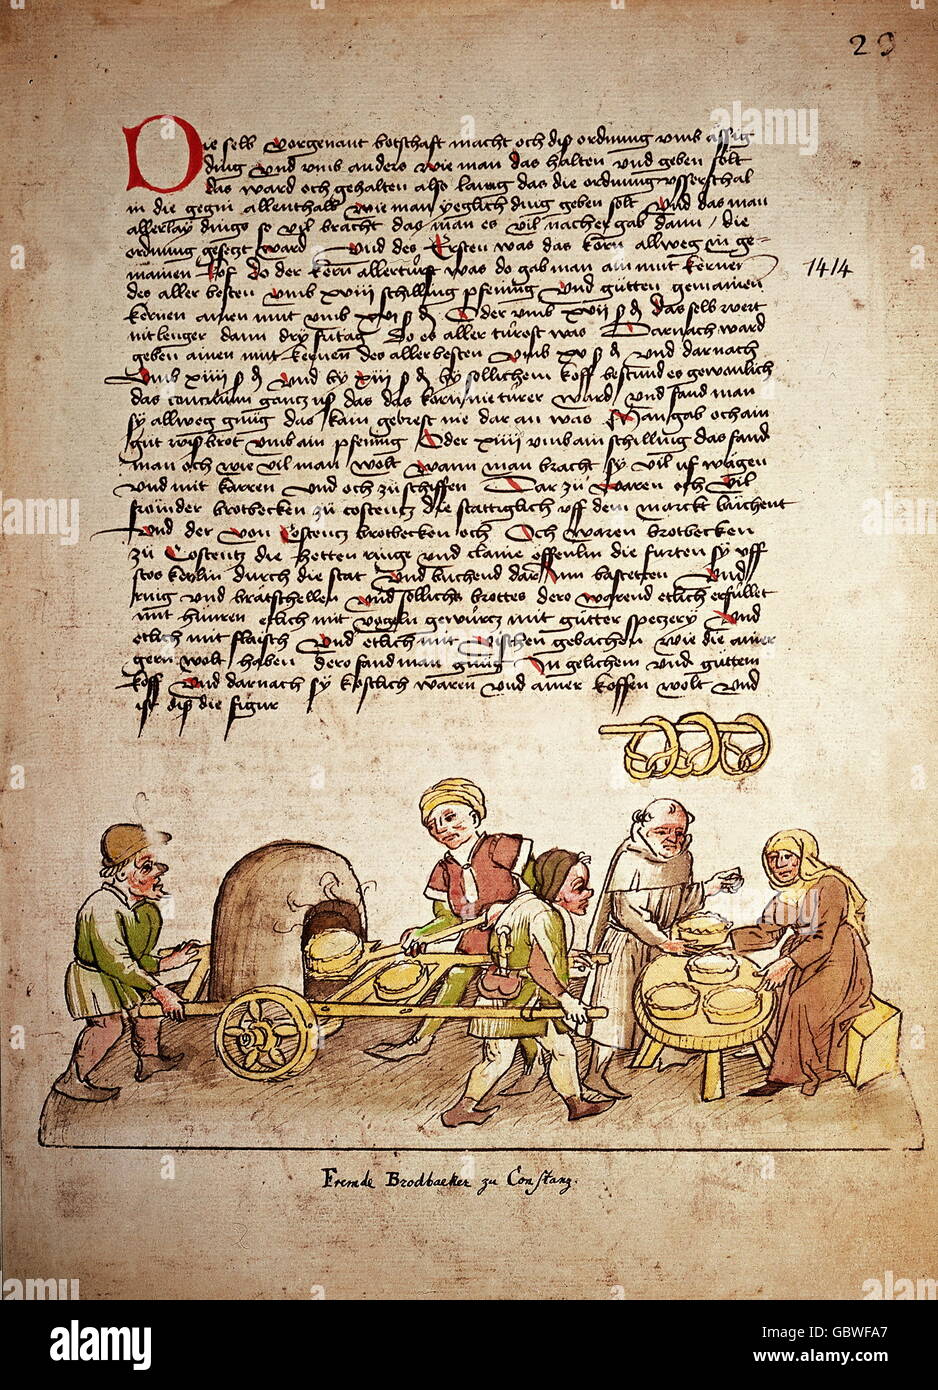 29
Die selb vorgenant botschaft macht och dis ordnung umb ässig
ding und umb anders wie man das halten und geben solt
das ward och gehalten also lang das die ordnung
in die gegni allenthalb wie man yeglich ding geben solt und das man
allerlay dings so vil bracht das man es vil nacher gab dann die
ordnung gesetzt ward Und des Ersten was das korn allweg in ge-
mainen koff do der kern allertürst was do gab man ain mut kernen
1414
des aller besten umb xviii schilling pfennig und gütten gemainen
kernen ainen mut umb xvi ß d Oder umb xvii ß d das selb wert
nit lenger dann dry futag do es aller türost was Darnach ward
geben ainen mut kernen des aller besten umb xv ß d und darnach
umb xiiii ß d und by xiii ß d by sollichem koff bestund es gewonlich
das concilium gantz us das das korn nie türer ward und fand man
sy allweg gnüg das kain gebrest nie dar an was Man gab och ain
gut wisbrot umb ain pfennig Oder xiiii umb ain schilling das fand
man och wie vil man wolt wann man bracht sy vil uf wägen
und mit karren und och zü schiffen Dar zü waren och vil
frömder brotbecken zu costentz die stattiglich uff dem marckt büchent
und der von Costentz brotbecken och Och waren brotbecken
zü Costentz die hetten ringe und claine öffenlin die furten sy uff
stos kerlin durch die stat und büchend dar inn bastetten und
ring und bratschellen und sollichs brottes dero warend etlich erfüllet
mit hünren etlich mit vogeln gewürcz mit gütter speczery und
etlich mit flaisch und etlich mit vischen gebachen wie die ainer
gern wolt haben dero fand man gnüg in gelichem und güttem
koff und darnach sy kostlich waren und ainer koffen wolt und
ist dis die figur
Fremde Brodbaeker zu Constanz.
alamy
Image ID: GBWFA7
www.alamy.com